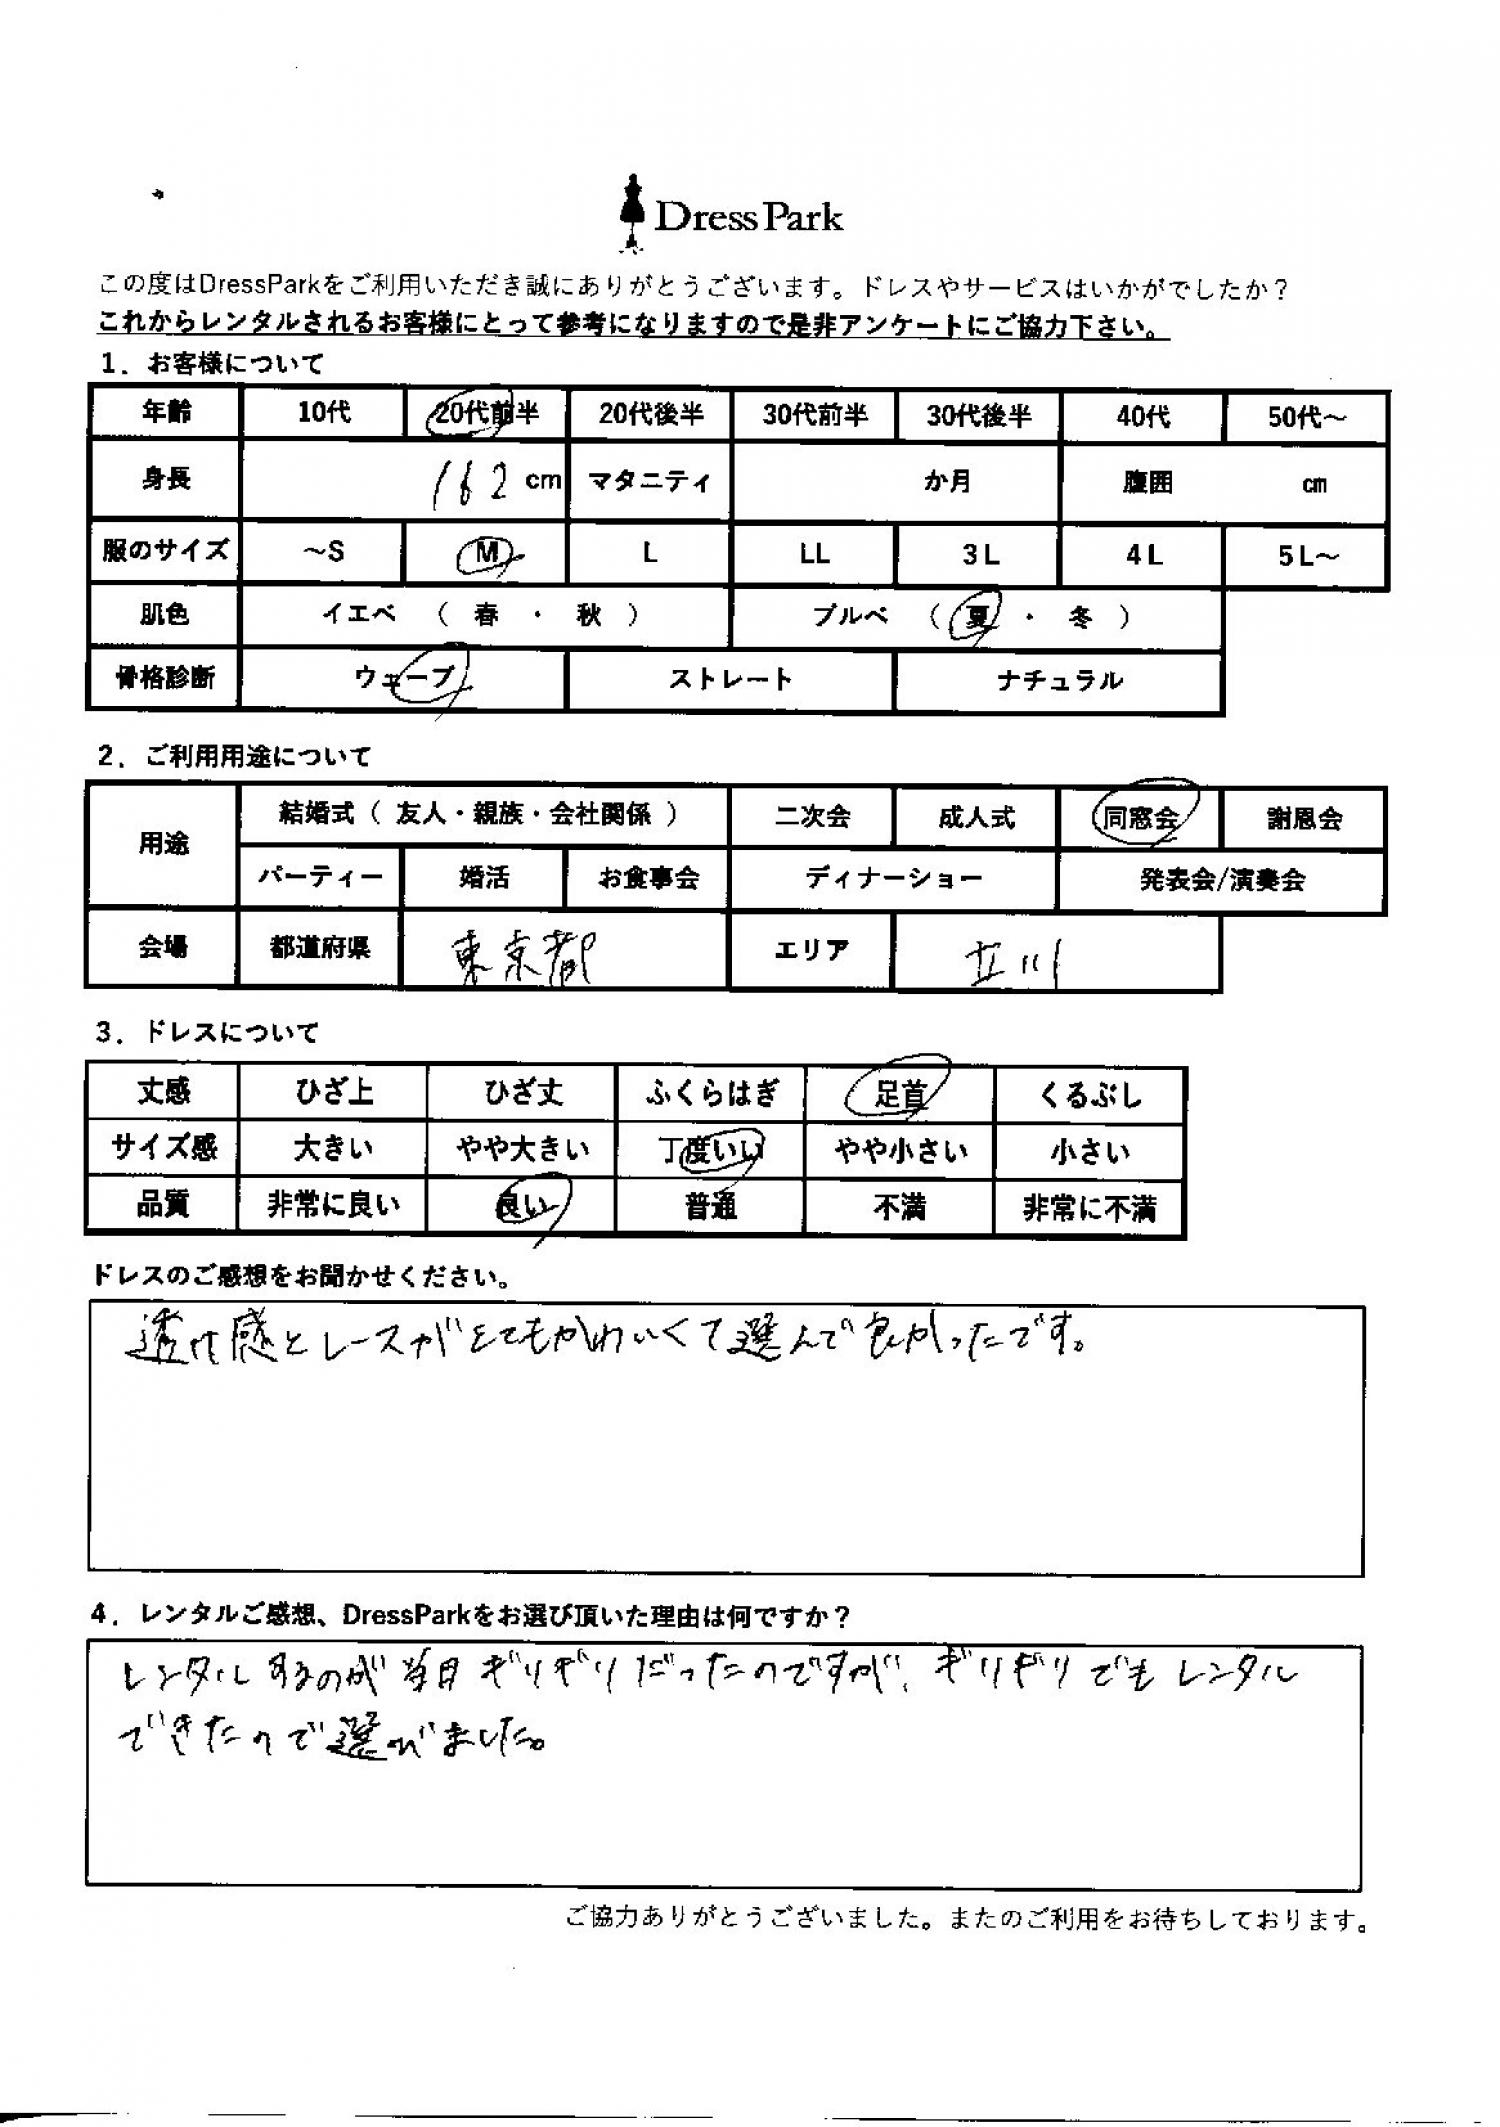 Dress Park
この度はDressParkをご利用いただき誠にありがとうございます。ドレスやサービスはいかがでしたか？
これからレンタルされるお客様にとって参考になりますので是非アンケートにご協力下さい。
1．お客様について
年齢 10代 20代前半 20代後半 30代前半 30代後半 40代 50代～
身長 162 cm マタニティ か月 腹囲 cm
服のサイズ ～S M L LL 3L 4L 5L～
肌色 イエベ （ 春 ・ 秋 ） ブルベ （ 夏 ・ 冬 ）
骨格診断 ウェーブ ストレート ナチュラル
2．ご利用用途について
用途 結婚式（ 友人・親族・会社関係 ） 二次会 成人式 同窓会 謝恩会
パーティー 婚活 お食事会 ディナーショー 発表会/演奏会
会場 都道府県 東京都 エリア 立川
3．ドレスについて
丈感 ひざ上 ひざ丈 ふくらはぎ 足首 くるぶし
サイズ感 大きい やや大きい 丁度いい やや小さい 小さい
品質 非常に良い 良い 普通 不満 非常に不満
ドレスのご感想をお聞かせください。
透け感とレースがとてもかわいくて選んで良かったです。
4．レンタルご感想、DressParkをお選び頂いた理由は何ですか？
レンタルするのが当日ギリギリだったのですが、ギリギリでもレンタル
できたので選びました。
ご協力ありがとうございました。またのご利用をお待ちしております。